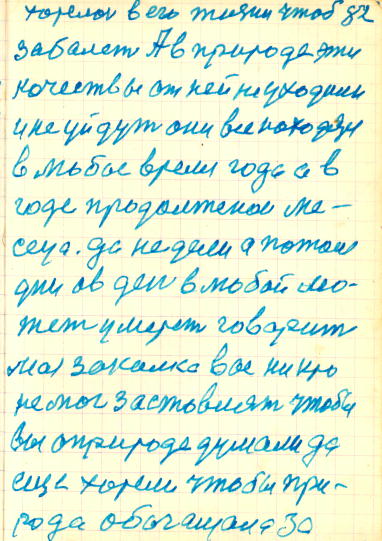 хорелои в его жизни чтоб 82
забалет А в природе эти
качествы от ней не уходили
и не уйдут они все находяця
в любое время года а в
годе продолжении ме-
сеца. да недели а потом
дни ов ден в любой мо-
жет умерет говорит
моя закалка вас никто
не мог заставлят чтобы
вы о природе думали да
еще хорели чтобы при-
рода обагащала за